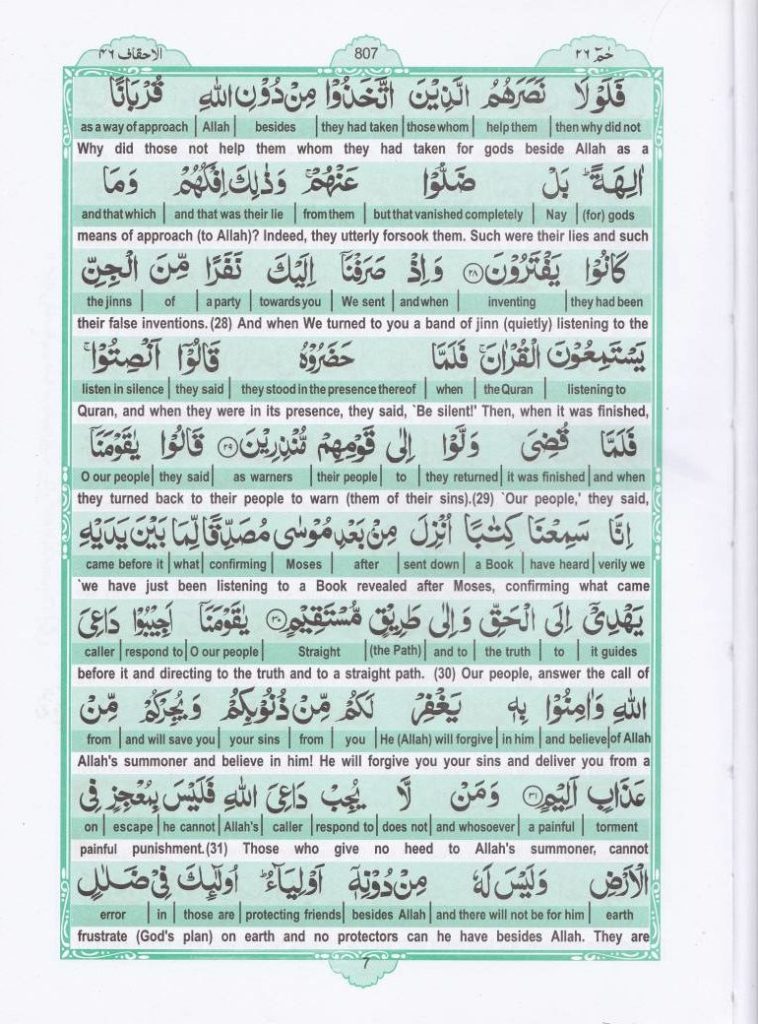 الاحقاف ٤٦ 807 حٰمٓ ٢٦
فَلَوْلَا نَصَرَهُمُ الَّذِيْنَ اتَّخَذُوْا مِنْ دُوْنِ اللّٰهِ قُرْبَانًا
then why did not | help them | those whom | they had taken | besides | Allah | as a way of approach
Why did those not help them whom they had taken for gods beside Allah as a
اٰلِهَةً ؕ بَلْ ضَلُّوْا عَنْهُمْ ۚ وَذٰلِكَ اِفْكُهُمْ وَمَا
(for) gods | Nay | but that vanished completely | from them | and that was their lie | and that which
means of approach (to Allah)? Indeed, they utterly forsook them. Such were their lies and such
كَانُوْا يَفْتَرُوْنَ ۝٢٨ وَاِذْ صَرَفْنَاۤ اِلَيْكَ نَفَرًا مِّنَ الْجِنِّ
they had been | inventing | and when | We sent | towards you | a party | of | the jinns
their false inventions. (28) And when We turned to you a band of jinn (quietly) listening to the
يَسْتَمِعُوْنَ الْقُرْاٰنَ ۚ فَلَمَّا حَضَرُوْهُ قَالُوْۤا اَنْصِتُوْا ۚ
listening to | the Quran | when | they stood in the presence thereof | they said | listen in silence
Quran, and when they were in its presence, they said, `Be silent!' Then, when it was finished,
فَلَمَّا قُضِىَ وَلَّوْا اِلٰى قَوْمِهِمْ مُّنْذِرِيْنَ ۝٢٩ قَالُوْا يٰقَوْمَنَاۤ
and when | it was finished | they returned | to | their people | as warners | they said | O our people
they turned back to their people to warn (them of their sins).(29) `Our people,' they said,
اِنَّا سَمِعْنَا كِتٰبًا اُنْزِلَ مِنْۢ بَعْدِ مُوْسٰى مُصَدِّقًا لِّمَا بَيْنَ يَدَيْهِ
verily we | have heard | a Book | sent down | after | Moses | confirming | what | came before it
`we have just been listening to a Book revealed after Moses, confirming what came
يَهْدِىْۤ اِلَى الْحَقِّ وَاِلٰى طَرِيْقٍ مُّسْتَقِيْمٍ ۝٣٠ يٰقَوْمَنَاۤ اَجِيْبُوْا دَاعِىَ
it guides | to | the truth | and to | (the Path) | Straight | O our people | respond to | caller
before it and directing to the truth and to a straight path. (30) Our people, answer the call of
اللّٰهِ وَاٰمِنُوْا بِهٖ يَغْفِرْ لَكُمْ مِّنْ ذُنُوْبِكُمْ وَيُجِرْكُمْ مِّنْ
of Allah | and believe | in him | He (Allah) will forgive | you | from | your sins | and will save you | from
Allah's summoner and believe in him! He will forgive you your sins and deliver you from a
عَذَابٍ اَلِيْمٍ ۝٣١ وَمَنْ لَّا يُجِبْ دَاعِىَ اللّٰهِ فَلَيْسَ بِمُعْجِزٍ فِى
torment | a painful | and whosoever | does not | respond to | caller | Allah's | he cannot | escape | on
painful punishment.(31) Those who give no heed to Allah's summoner, cannot
الْاَرْضِ وَلَيْسَ لَهٗ مِنْ دُوْنِهٖۤ اَوْلِيَآءُ ؕ اُولٰٓئِكَ فِىْ ضَلٰلٍ
earth | and there will not be for him | besides Allah | protecting friends | those are | in | error
frustrate (God's plan) on earth and no protectors can he have besides Allah. They are